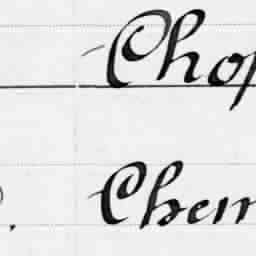 Chop
Chem